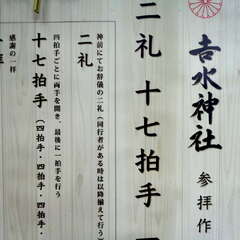 𠮷水神社 参拝作
二礼 十七拍手 一
二礼
神前にてお辞儀の二礼（同行者がある時は以降揃えて行う
十七拍手（四拍手・四拍手・四拍手・
四拍手ごとに両手を開き、最後に一拍手を行う
感謝の一拝